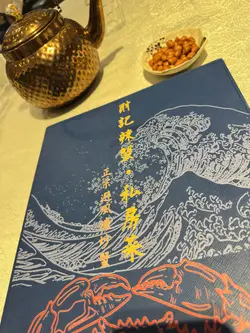 財記辣蟹·私房菜
正宗避風塘炒蟹